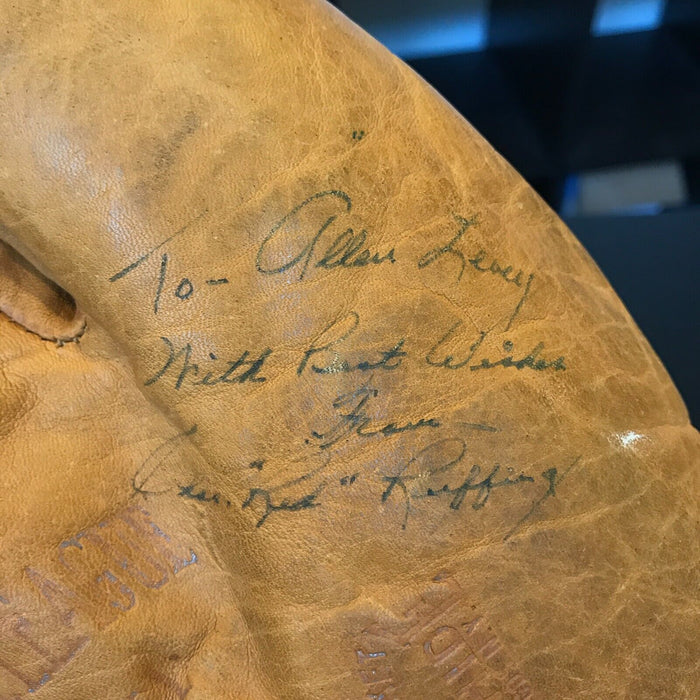 To- Allen Levey
With Best Wishes
From -
Chas. "Red" Ruffing
LEAGUE